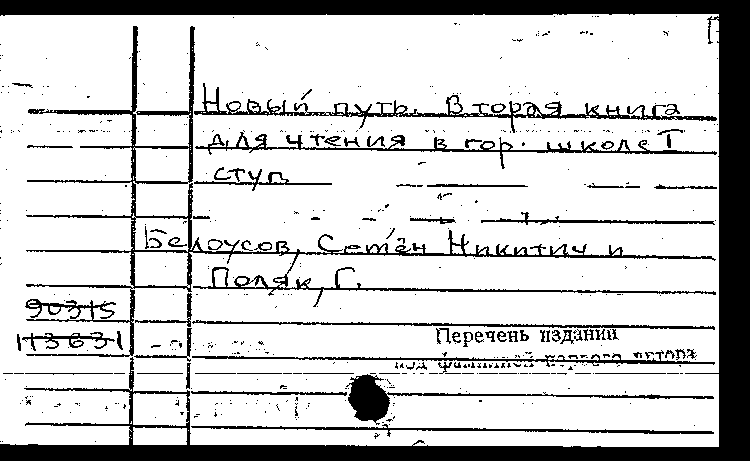 Новый путь. Вторая книга
для чтения в гор. школе I
ступ.
Белоусов, Семён Никитич и
Поляк, Г.
90315
113631
Перечень изданий
под фамилией первого автора